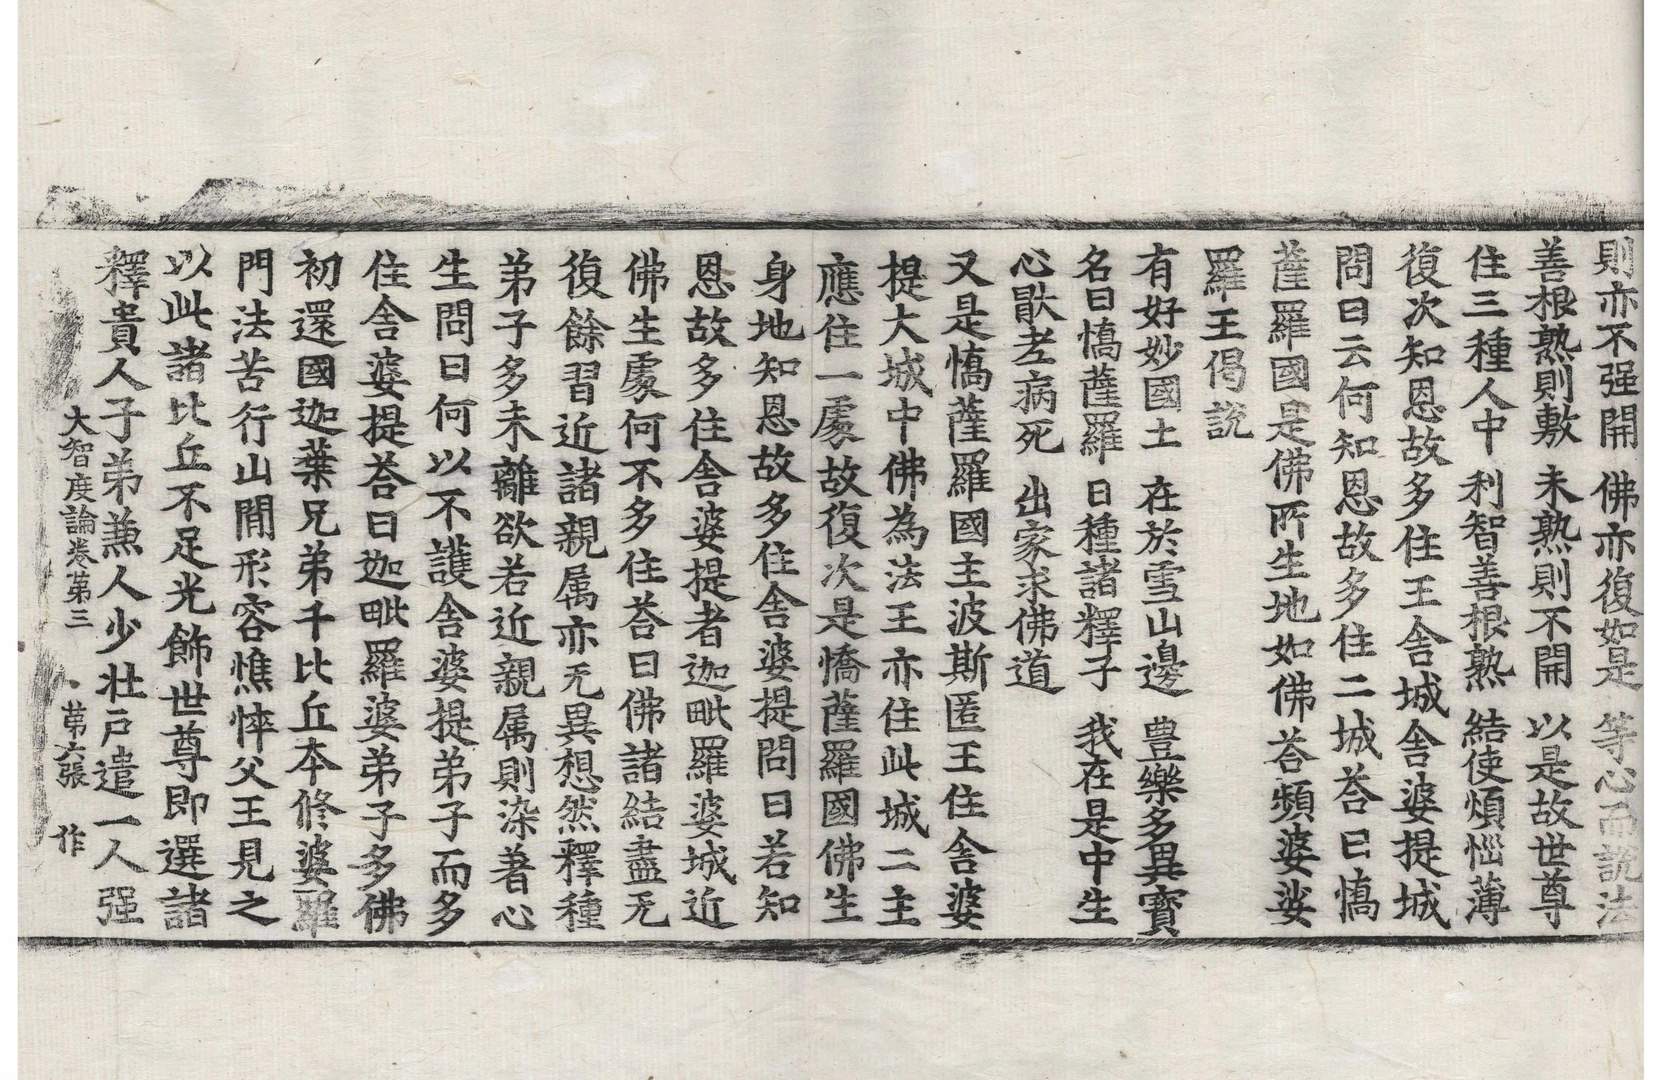 則亦不强開　佛亦復如是　等心而說法
善根熟則敷　未熟則不開　以是故世尊
住三種人中　利智善根熟　結使煩惱薄
復次知恩故多住王舍城舍婆提城
問曰云何知恩故多住二城荅曰憍
薩羅國是佛所生地如佛荅頻婆娑
羅王偈說
有好妙國土　在於雪山邊　豊樂多異寶
名曰憍薩羅　日種諸釋子　我在是中生
心猒老病死　出家求佛道
又是憍薩羅國主波斯匿王住舍婆
提大城中佛為法王亦住此城二主
應住一處故復次是憍薩羅國佛生
身地知恩故多住舍婆提問曰若知
恩故多住舍婆提者迦毗羅婆城近
佛生處何不多住荅曰佛諸結盡无
復餘習近諸親属亦无異想然釋種
弟子多未離欲若近親属則染著心
生問曰何以不護舍婆提弟子而多
住舍婆提荅曰迦毗羅婆弟子多佛
初還國迦葉兄弟千比丘本修婆羅
門法苦行山間形容憔悴父王見之
以此諸比丘不足光飾世尊即選諸
釋貴人子弟兼人少壮戸遣一人强
大智度論卷第三　第六張　作